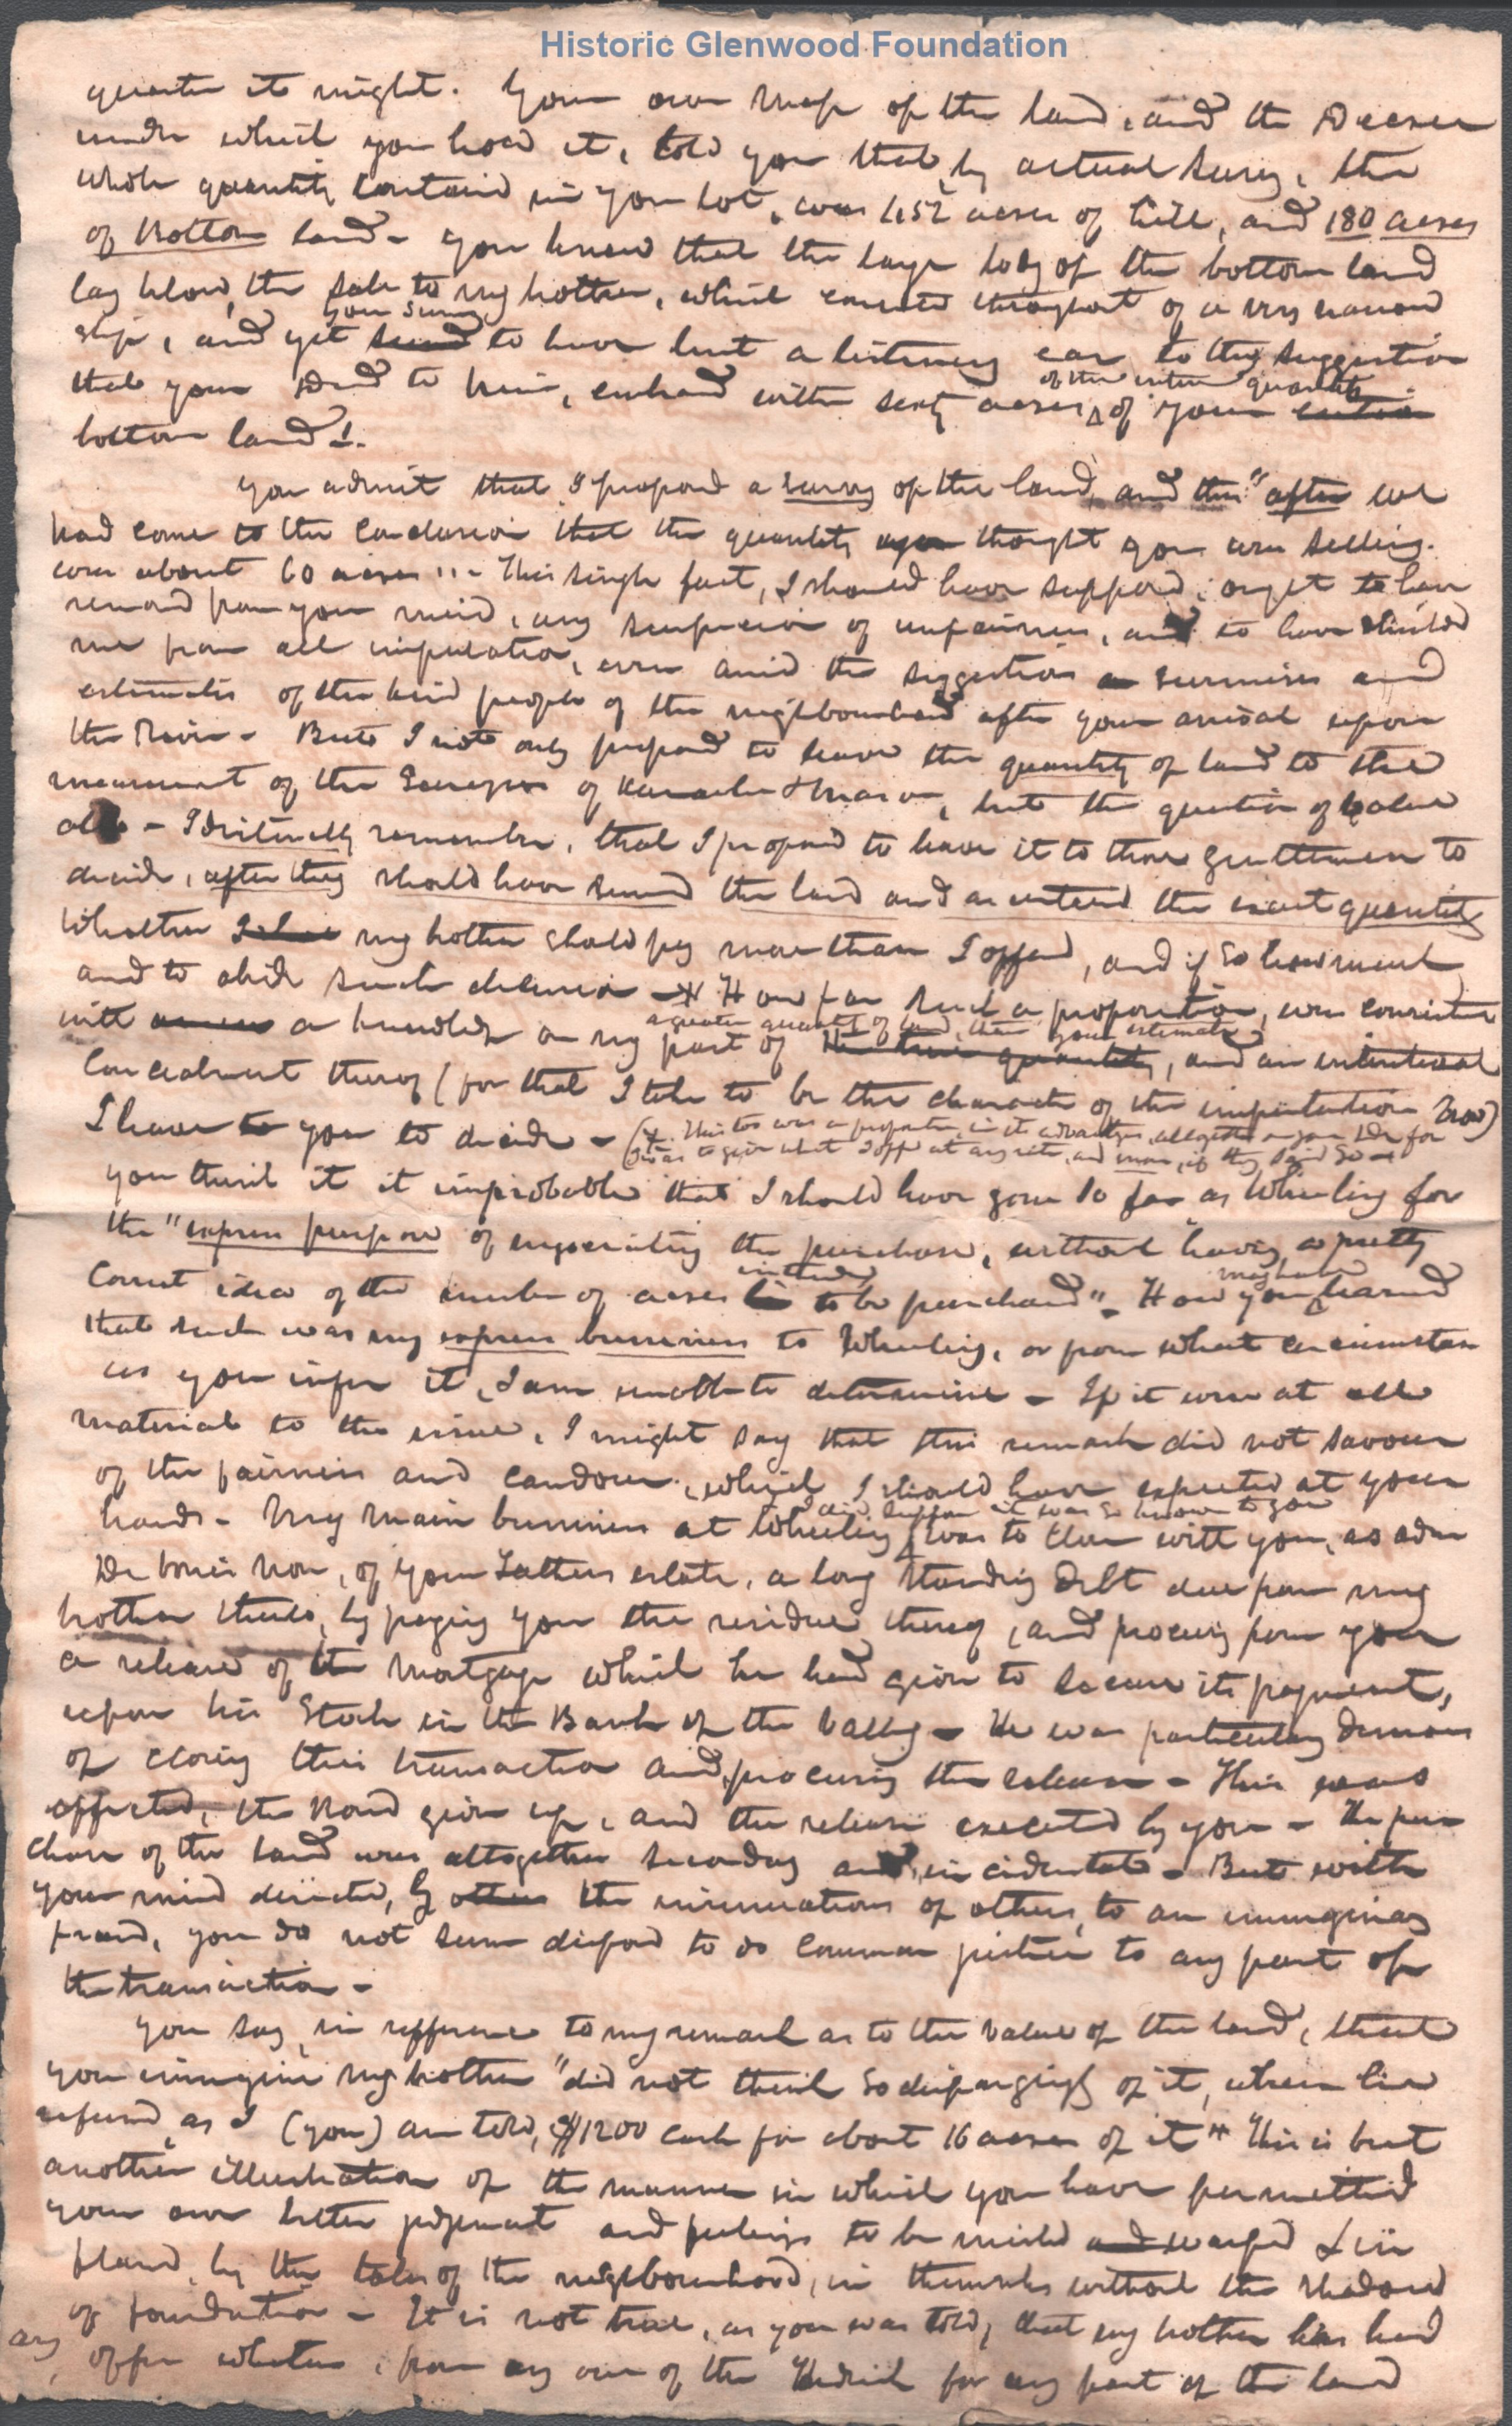 Historic Glenwood Foundation
quarter it might. Your own Map of the land, and the Decree
under which you hold it, told you that, by actual survey, the
whole quantity contained in your lot, was 1.152 acres of hill, and 180 acres
of bottom land - you knew that the large body of the bottom land
lay below the sale to my brother, which consists throughout of a very narrow
slip, and yet you seem to have lent a listening ear to the suggestion
that your Deed to him, embraced with sixty acres of the entire quantity of your
bottom land!.
You admit that I proposed a survey of the land, and this "after we
had come to the conclusion that the quantity you thought you were selling.
was about 60 acres"! - This single fact, I should have supposed, ought to have
removed from your mind, any suspicion of unfairness, and to have shielded
me from all imputation, even amid the suggestions surmises and
estimates of the kind people of the neighbourhood after your arrival upon
the River - But I not only proposed to leave the quantity of land to the
measurement of the Surveyors of Kanawha & Mason, but the question of value
also - I distinctly remember, that I proposed to leave it to those gentlemen to
decide, after they should have surveyed the land and ascertained the exact quantity
Whether my brother should pay more than I offered, and if so how much
and to abide such decision - * How far such a proposition, was consistent
with a knowledge on my part of a greater quantity of land, than your estimate, and an intentional
concealment thereof (for that I take to be the character of the imputation now)
I leave to you to decide - (*. This too was a proposition, in its advantages, altogether on your side for
I was to give what I offered at any rate, and more, if they said so -
you think it improbable that I should have gone so far as Wheeling for
the "express purpose of negociating the purchase, without having a pretty
correct idea of the number of acres intended to be purchased" - How you may have learned
that such was my express business to Wheeling, or from what circumstan
ces you infer it, I am unable to determine - If it were at all
material to the issue, I might say that this remark did not savour
of the fairness and candour, which I should have expected at your
hands - My main business at Wheeling I did suppose it was so known to you was to close with you, as adm
De bonis Non, of your Fathers estate, a long standing debt due from my
brother thereto, by paying you the residue thereof, and procuring from you
a release of the mortgage which he had given to secure its payment,
upon his Stock in the Bank of the Valley - He was particularly desirous
of closing this transaction and procuring the release - This was
effected, the Bond given up, and the release executed by you - The pur
chase of the land was altogether secondary and incidental - But with
your mind directed, by the insinuations of others, to an imaginary
fraud, you do not seem disposed to do common justice to any part of
the transaction -
You say, in refference to my remark as to the value of the land, that
you imagine my brother "did not think so disparagingly of it, when he
refused, as I (you) am told, $1200 cash for about 16 acres of it" This is but
another illustration of the manner in which you have permitted
your own better judgement and feelings to be misled warped & in
flamed, by the tales of the neighbourhood, in themselves without the shadow
of foundation - It is not true, as you was told, that my brother has had
any offer whatever, from any one of the for any part of the land